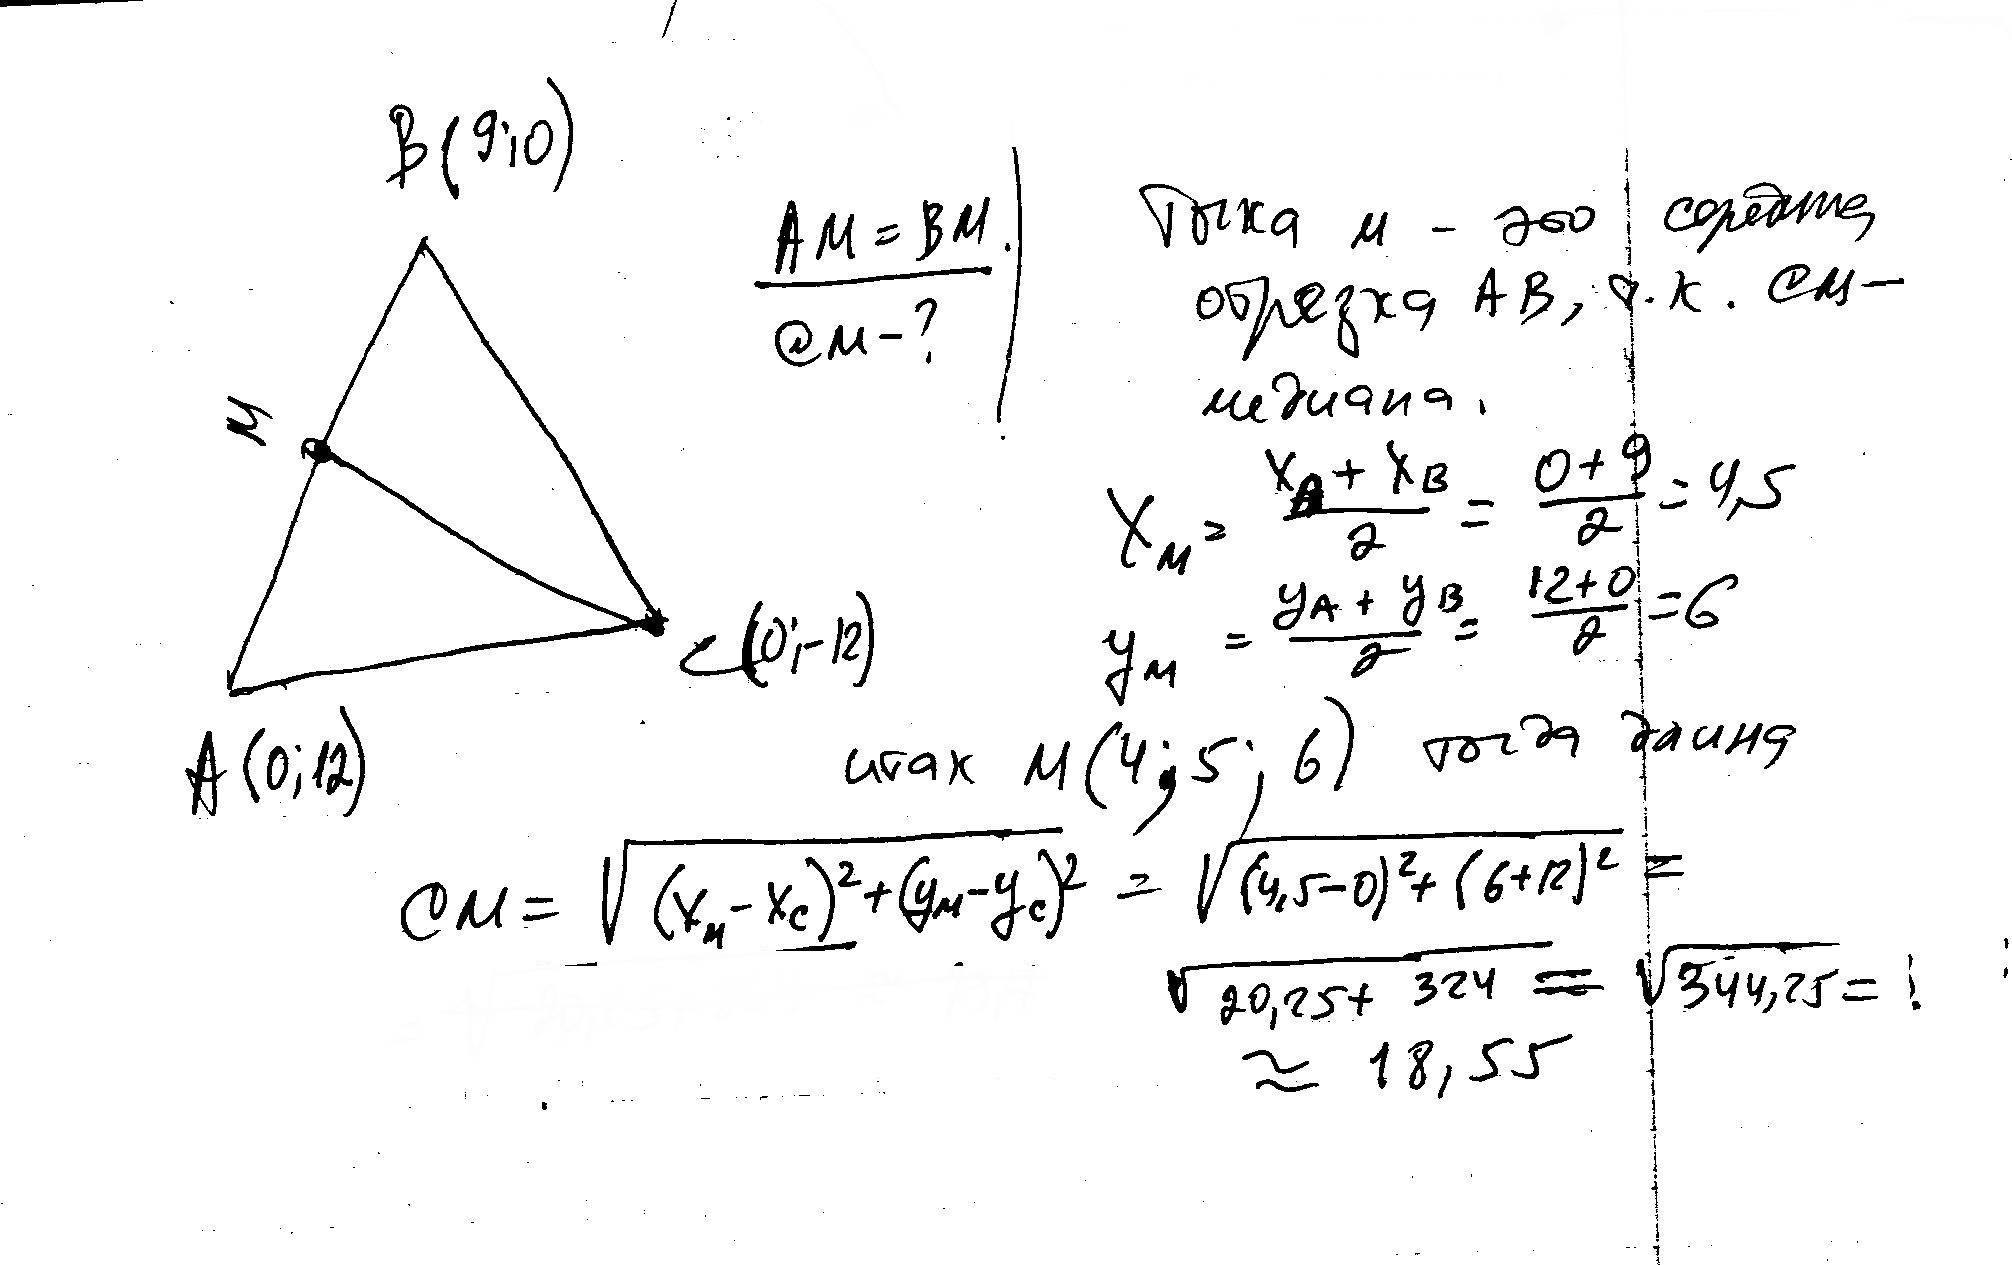 B(9;0)
AM = BM.
CM - ?
M
A(0;12)
C(0;-12)
Точка M - это середина
отрезка AB, т.к. CM -
медиана.
X_M = (X_A + X_B)/2 = (0+9)/2 = 4,5
y_M = (y_A + y_B)/2 = (12+0)/2 = 6
итак M(4,5; 6) тогда длина
CM = √((X_M - X_C)² + (y_M - y_C)²) = √((4,5-0)² + (6+12)²) =
√(20,25 + 324) = √(344,25) =
≈ 18,55